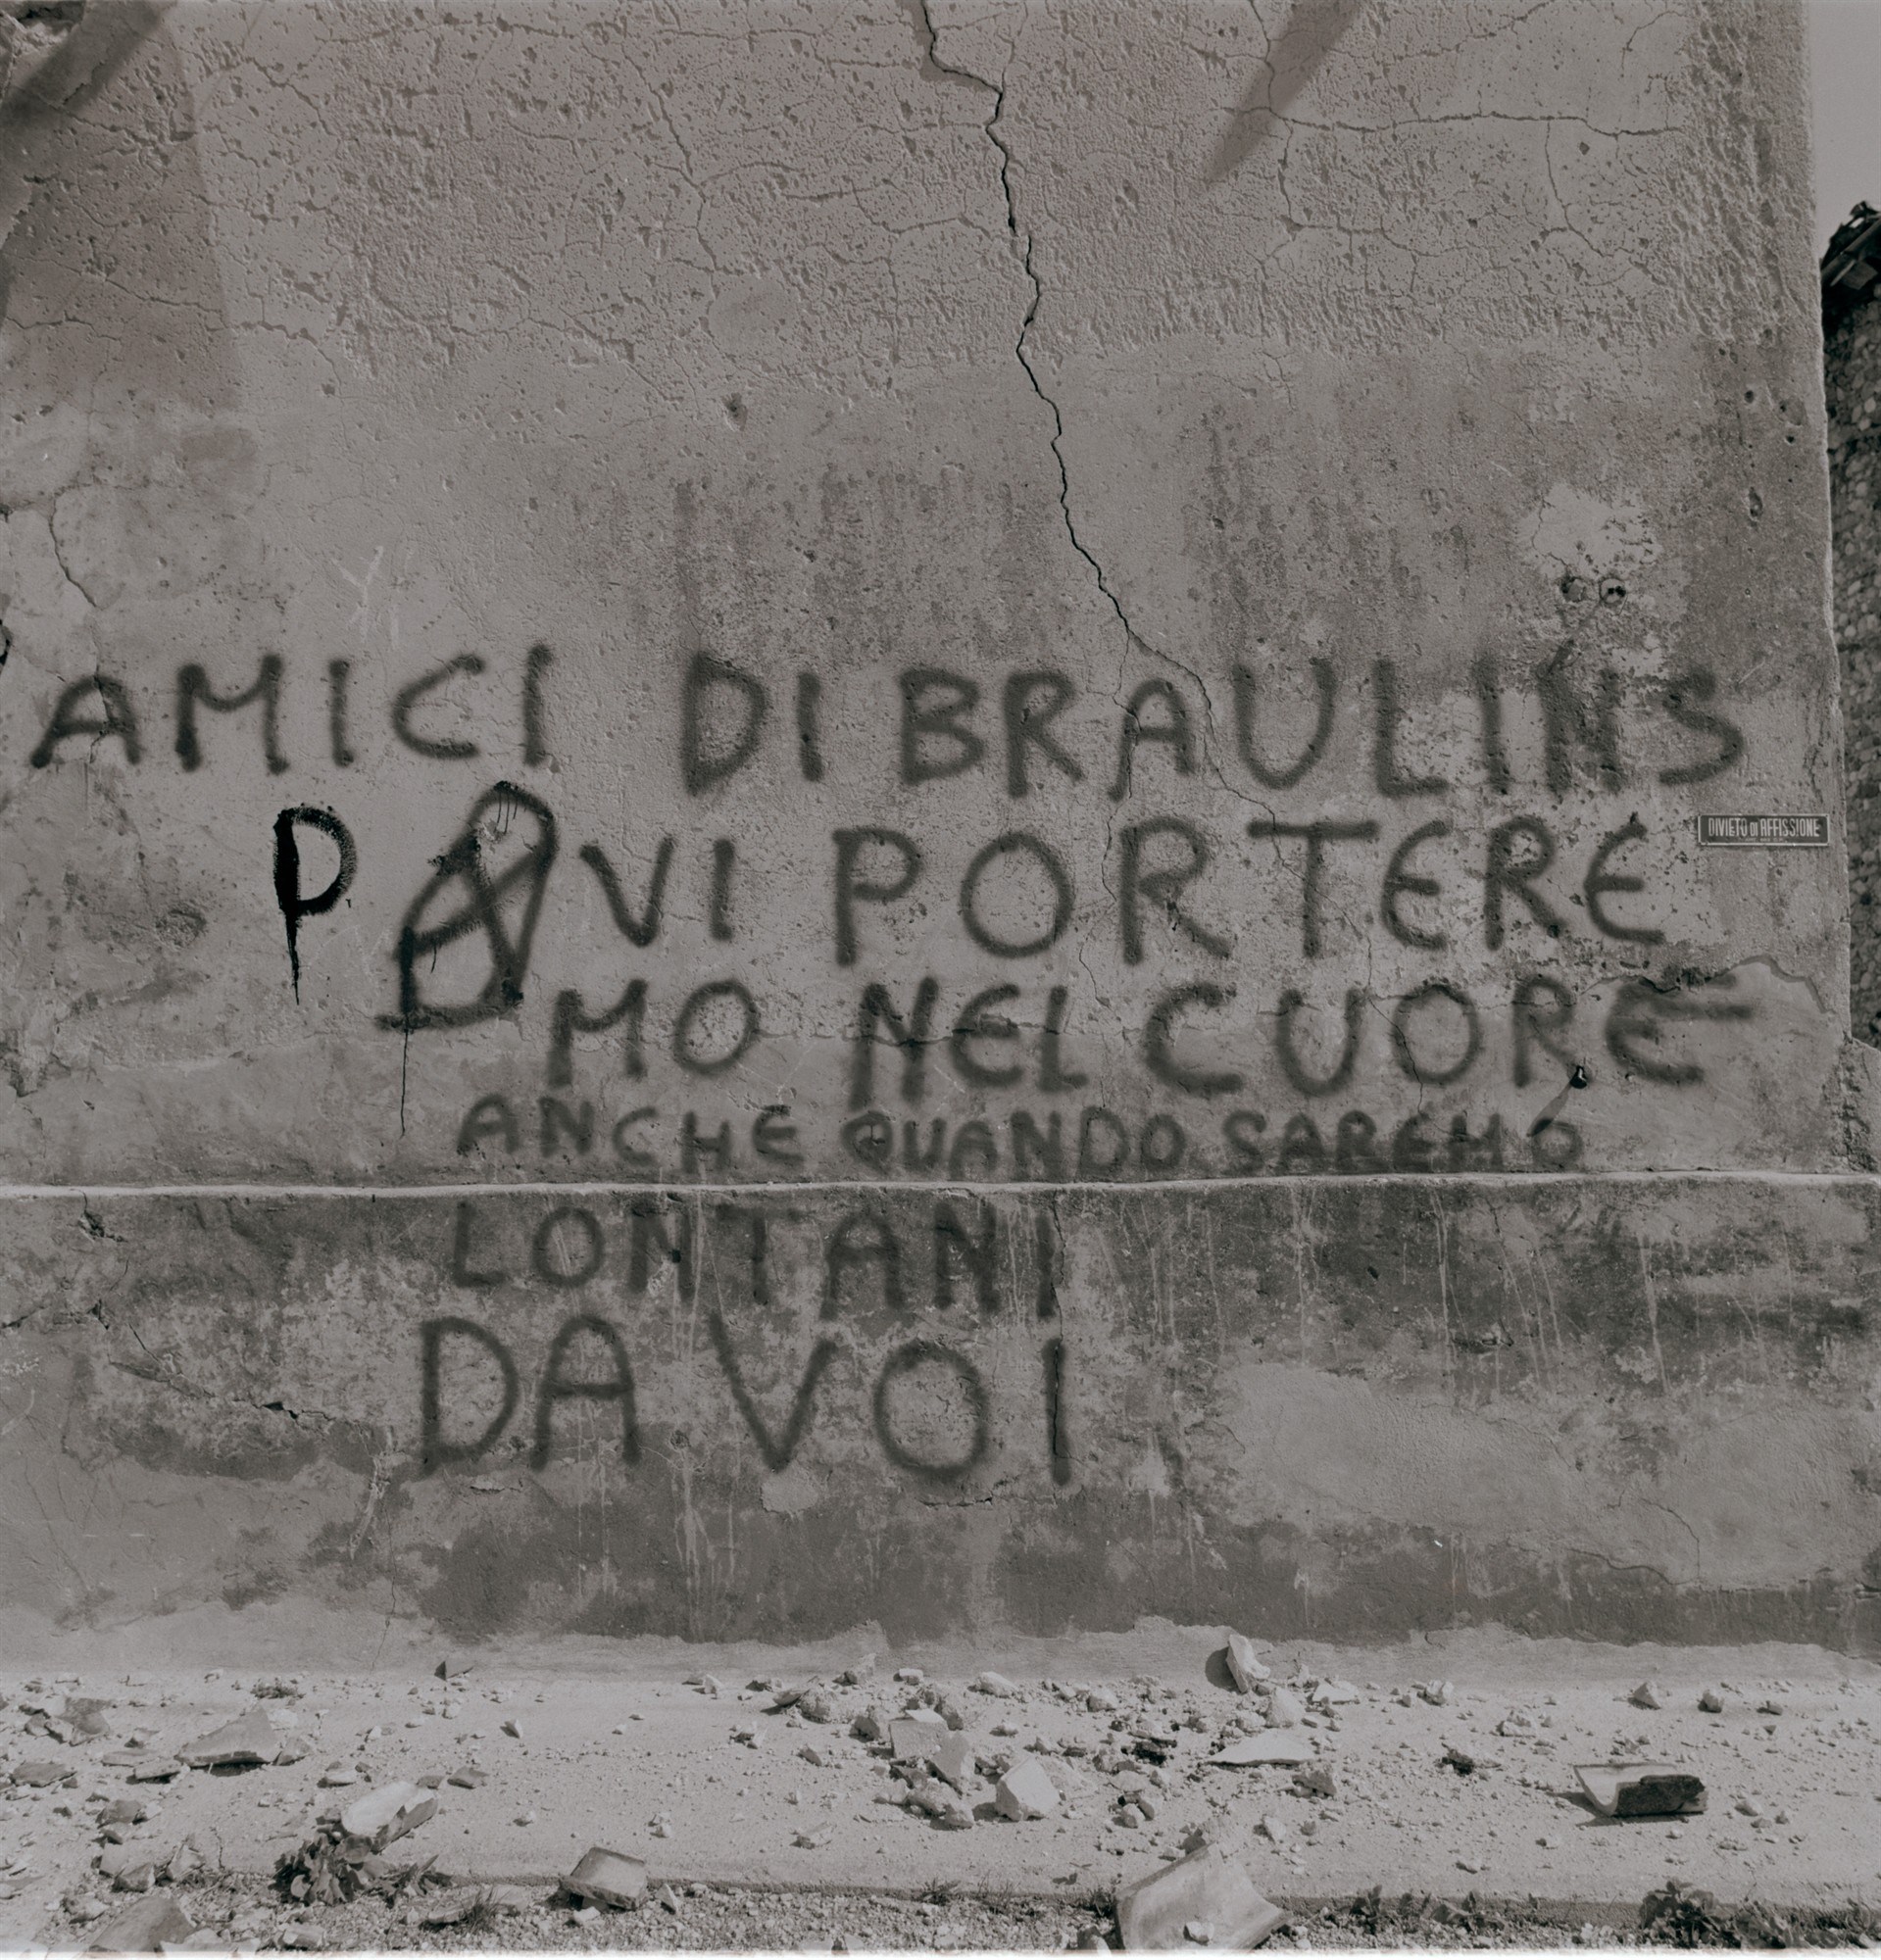 AMICI DI BRAULINS
P VI PORTERE
DIVIETO DI AFFISSIONE
MO NEL CUORE
ANCHE QUANDO SAREMO
LONTANI
DA VOI